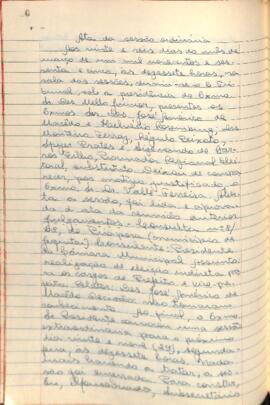 6
Ata da sessão ordinária
Aos vinte e seis dias do mês de
março de um mil novecentos e ses-
senta e cinco, às dezessete horas, na
sala das sessões, reune-se o Tri-
bunal, sob a presidência do Exmo.
Sr. Des. Mello Júnior, presentes os
Exmos. Srs. Des. José Januário da
e
Monteiro Ferraz, Régulo Peixoto,
Prates e de Bar-
ros Filho, Procurador Regional Elei-
toral, substituto. Deixou de compa-
recer, por motivo justificado, o
Exmo. Sr. Dr. Valle Ferreira. Aber-
ta a sessão, foi lida e aprova-
da a ata da reunião anterior.
Julgamentos - Consulta nº
de (município de
) Consulente: Presidente
da Câmara Municipal. Assunto:
realização de eleição indireta pa-
ra os cargos de Prefeito e vice-pre-
feito. Relator: Des. José Januário de
Decisão: Não tomaram
conhecimento. Ao final, o Exmo.
Sr. Presidente convocou uma sessão
extraordinária para o próximo
dia vinte e nove (29), segunda-
feira, às dezessete horas. Nada
mais havendo a tratar, a ses-
são foi encerrada. Para constar,
eu, subsecretário